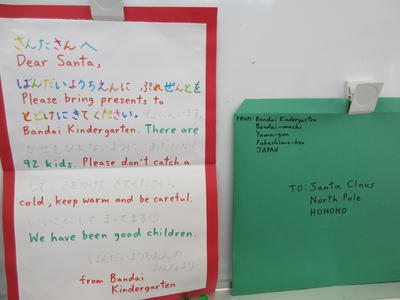 さんたさん へ
Dear Santa,
ばんだいようちえんに ぷれぜんとを
Please bring presents to
とどけにきてください。
Bandai Kindergarten. There are
かぜをひかないように あたたかく
92 kids. Please don't catch a
して きをつけて きてください。
cold, keep warm and be careful.
いいこにして まってます♡
We have been good children.
ばんだいようちえんの
みんなより
from Bandai
Kindergarten
FROM: Bandai Kindergarten
Bandai-machi
Yama-gun
Fukushima-ken
JAPAN
TO: Santa Claus
North Pole
HOHOHO